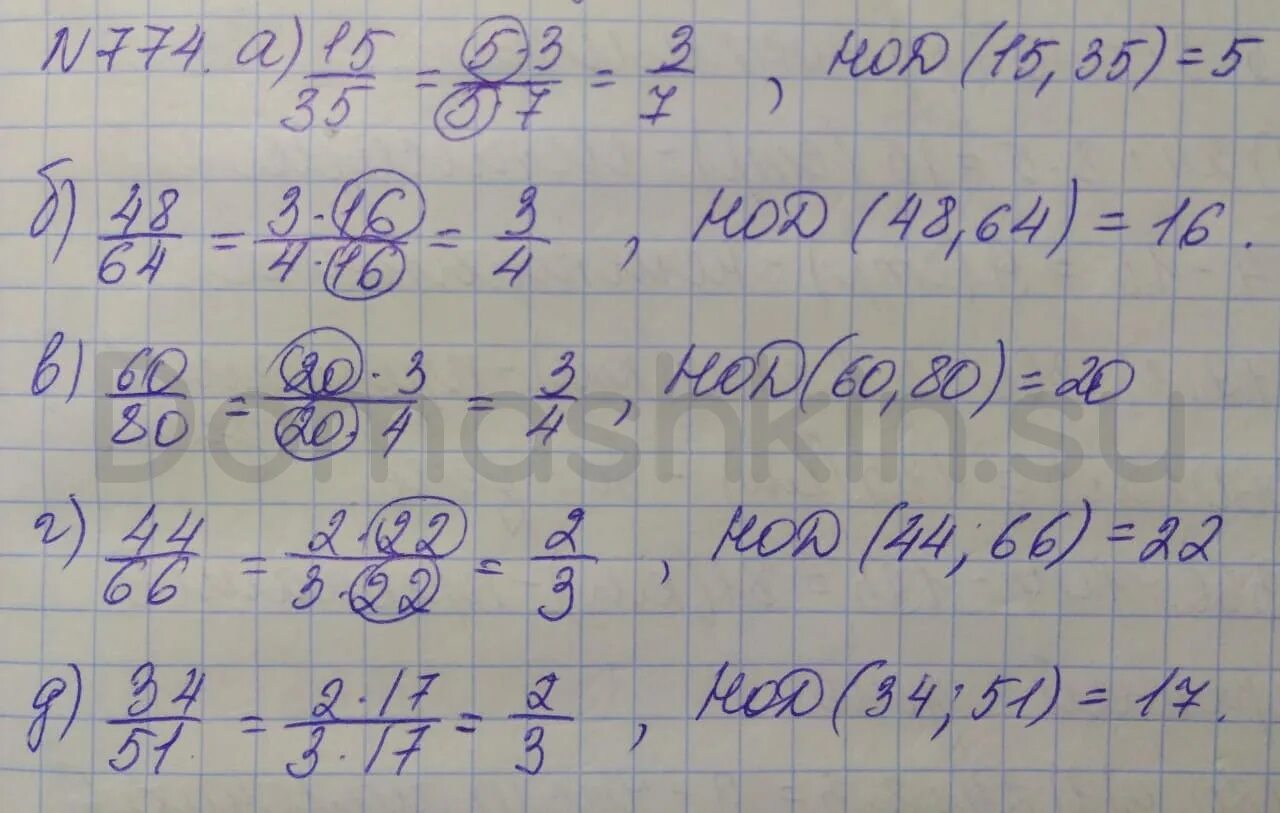 N774. а) 15/35 = 5·3/5·7 = 3/7, НОД (15, 35) = 5
б) 48/64 = 3·16/4·16 = 3/4, НОД (48, 64) = 16.
в) 60/80 = 20·3/20·4 = 3/4, НОД (60, 80) = 20
г) 44/66 = 2·22/3·22 = 2/3, НОД (44; 66) = 22
д) 34/51 = 2·17/3·17 = 2/3, НОД (34; 51) = 17.
Domashkin.su